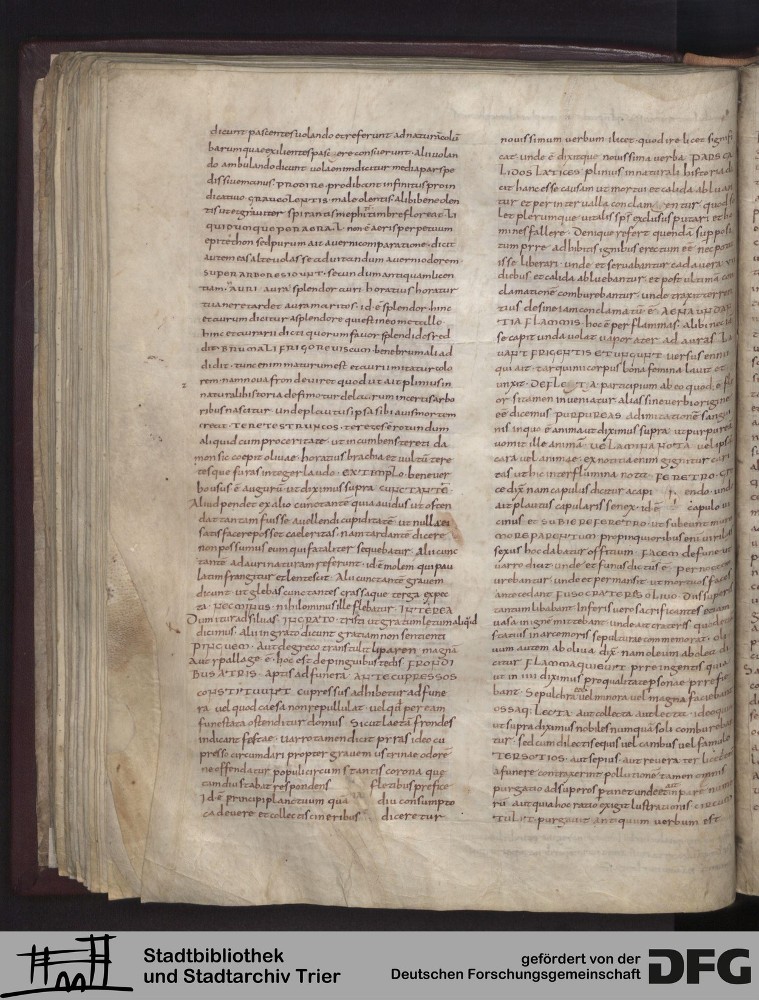 dicunt pascentes volando et referunt ad naturā colū
barum quae exilientes pascere consuerunt. Alii volan
do ambulando dicunt volāē ndicitur media par spo
PRODIRE prodibant infinitus pro in
dicativo GRAVEOLENTIS. male olentis. Alibi bene olen
tis integraviter spirantis mephitim
QUI DUNQUE PORA ERA. I. non ē aeris perpetuum
epitheton sed purum ait averni comparatione. dicit
autem eas alte volasse ad vitandum averni odorem.
SUPER ARBORE SIDUNT. secundum antiquam licen
tiam. AURI AURA splendor auri horatius
tua ne retardet aura maritos. id ē splendor. hinc
et aurum dicitur a splendore qui est in eo metallo
hinc et aurarii dicti quorum favor splendidos red
dit. BRUMALI FRIGORE VISCUM. bene brumali ad
didit. tunc enim maturum est et auri imitatur colo
rem. nam nova fronde viret quod ut ait plinius in
naturali historia de fimo turdelarum in certis arbo
ribus nascitur. unde plautus ipsa sibi avis mortem
creat. TERETES TRUNCOS. teretes ē rotundum
aliquid cum proceritate. ut incumbens tereti da
mon sic coepit olivae. horatius brachia et vultū tere
tesque suras integer laudo. EXTEMPLO. bene ver
bo usus ē augurū ut diximus supra. CUNCTANTĒ.
Aliud pendet ex alio cunctante quia avidus ut osten
dat tantam fuisse avellendi cupiditatē ut nulla ei
satisfacere posset caeleritas. nam tardantē dicere
non possumus eum qui fataliter sequebatur. Alii cunc
tantē ad auri naturam referunt. id ē molem qui pau
latim frangitur et lentescit. Alii cunctantē gravem
dicunt ut glebas cunctantes crassaque terga expec
ta. NEC MINUS. nihilominus ille flebatur. INTEREA
Dum itur ad silvas. INGRATO. tristi ut gratum letum aliqd
dicimus. alii ingrato dicunt gratiam non sentienti
PINGUEM. Aut de greco transtulit liparen magnā
Aut ypallage ē. hoc est de pinguibus tedis. FRONDI
BUS ATRIS. aptis ad funera. ANTE CUPRESSOS
CONSTITUUNT cupressus adhibetur ad fune
ra vel quod caesa non repullulat. vel qđ per eam
funestata ostenditur domus. Sicut laetā frondes
indicant festae. varro tamen dicit pyras ideo cu
presso circumdari propter gravem ustrinae odorē
ne offendatur populi circumstantis corona que
tam diu stabat respondens fletibus prefice
Id ē principi planctuum quam diu consumpto
cadavere et collectis cineribus diceretur
novissimum verbum ilicet. quod ire licet signifi
cat. unde ē dixitque novissima verba PARS CA
LIDOS LATICES plinius in naturali historia di
cit hanc esse causam ut mortui et calida abluan
tur et per intervalla conclamentur. quod so
let plerumque vitalis sps exclusus putari et ho
mines fallere. Denique refert quendā supposi
tum pyre adhibitis ignibus erectum et nec potu
isse liberari. unde et servabantur cadavera VIII
diebus et calida abluebantur. et post ultimā con
clamationē comburebantur. unde traxit teren
tius desine iam conclamatū ē. AENA UNDAN
TIA FLAMMIS. hoc ē per flammas. Alibi nec
se capit unda volat vapor ater ad auras. LA
VANT FRIGENTIS ET UNGUNT versus ennii
qui ait. tarquinii corpus bona femina lavit et
unxit. DEFLETA. participium ab eo quod ē defle
or. si tamen inveniatur. alias sine verbi origine
eē dicemus. PURPUREAS ad imitationē sangui
nis in quo ē anima ut diximus supra. ut purpureā
vomit ille animā. VELAMINA NOTA vel ipsi
cara vel animae. ex notitia enim gignitur cari
tas. ut hic inter flumina nota. FERETRO. gre
ce dix. nam capulus dicitur a capiendo. unde
ait plautus capularis senex. id ē capulo vi
cinus et SUBIERE FERETRO. ut subeunt muro
MORE PARENTUM. propinquoribus enī virilis
sexus hoc dabatur officium. FACEM de fune ut
varro dicit unde et funus dictus ē. Per noctem
urebantur. unde et permansit. ut mortuos faces
antecedant. FUSO CRATERES OLIVO. Diis superis
tantum libabant. Inferis vero sacrificantes etiam
vasa in igne mittebant. unde ait crateres. quod
statius in arcemoris sepultura commemorat. oli
vum autem ab oliva dix. nam oleum abolea di
citur. FLAMMA QUIEVIT pyre ingentis quia
ut in III diximus pro qualitate personae pyre fie
bant. Sepulchra vel minora vel magna faciebant
OSSAQ. LECTA. aut collecta. aut lecta. ideoque
ut supra diximus nobiles numquā soli combureban
tur. sed cum dilectis equis vel canibus vel famulis
TER SOTIOS. aut sepius. aut revera ter licet
a funere contraxerint pollutionē tamen omnis
purgatio ad superos pertinet unde et impare nume
rū. aut quia hoc ratio exigit lustrationis CIRCUM
TULIT. purgavit. antiquum verbum est
Stadtbibliothek
und Stadtarchiv Trier
gefördert von der
Deutschen Forschungsgemeinschaft
DFG